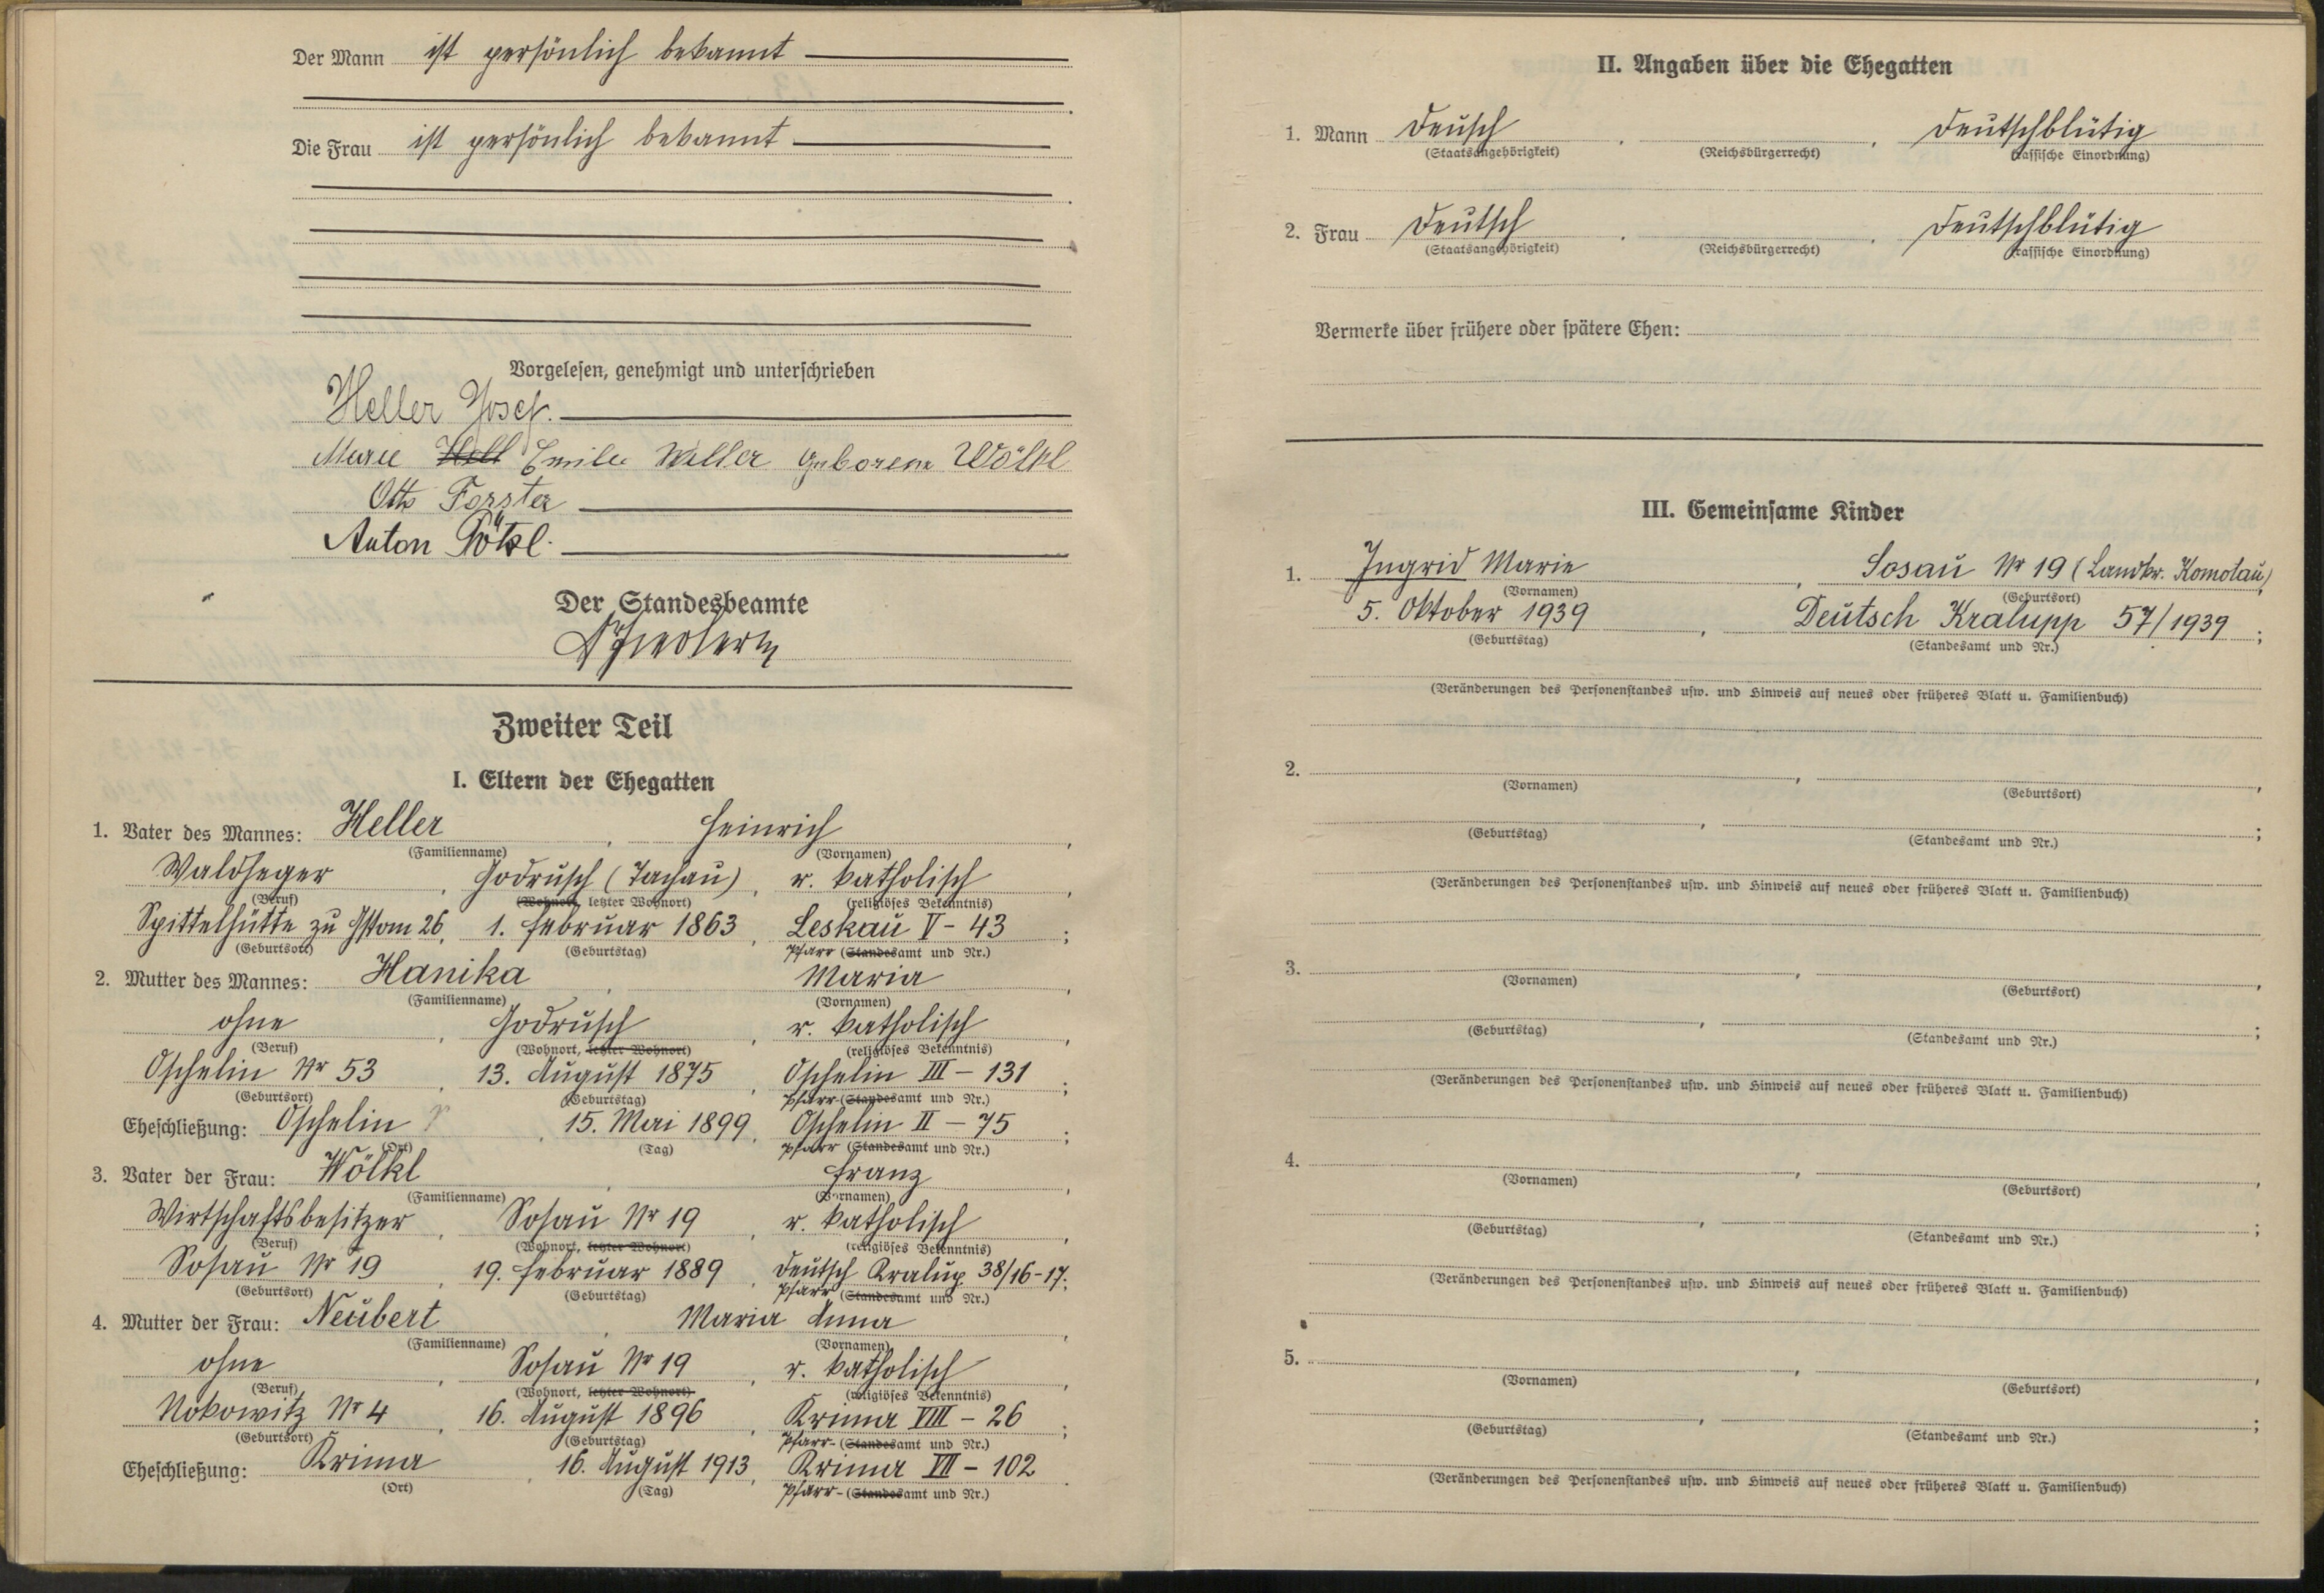 Der Mann ist persönlich bekannt
Die Frau ist persönlich bekannt
Vorgelesen, genehmigt und unterschrieben
Heller Josef.
Marie Hell Emilie Heller geborene Wölkl
Otto Forster
Anton Pötzl.
Der Standesbeamte
Zweiter Teil
I. Eltern der Ehegatten
1. Vater des Mannes: Heller, Heinrich,
(Familienname) (Vornamen)
Waldheger, Godrusch (Tachau), r. katholisch,
(Beruf) (Wohnort, letzter Wohnort) (religiöses Bekenntnis)
Spittelhütte zu 26, 1. Februar 1863, Leskau V - 43;
(Geburtsort) (Geburtstag) Pfarr (Standesamt und Nr.)
2. Mutter des Mannes: Hanika, Maria,
(Familienname) (Vornamen)
ohne, Godrusch, r. katholisch,
(Beruf) (Wohnort, letzter Wohnort) (religiöses Bekenntnis)
Oschelin Nr 53, 13. August 1875, Oschelin III - 131;
(Geburtsort) (Geburtstag) Pfarr-(Standesamt und Nr.)
Eheschließung: Oschelin, 15. Mai 1899, Oschelin II - 75;
(Ort) (Tag) Pfarr (Standesamt und Nr.)
3. Vater der Frau: Wölkl, Franz,
(Familienname) (Vornamen)
Wirtschaftsbesitzer, Sosau Nr 19, r. katholisch,
(Beruf) (Wohnort, letzter Wohnort) (religiöses Bekenntnis)
Sosau Nr 19, 19. Februar 1889, Deutsch Kralup 38/16-17;
(Geburtsort) (Geburtstag) Pfarr (Standesamt und Nr.)
4. Mutter der Frau: Neubert, Maria Anna,
(Familienname) (Vornamen)
ohne, Sosau Nr 19, r. katholisch,
(Beruf) (Wohnort, letzter Wohnort) (religiöses Bekenntnis)
Nokowitz Nr 4, 16. August 1896, Krima VIII - 26;
(Geburtsort) (Geburtstag) Pfarr-(Standesamt und Nr.)
Eheschließung: Krima, 16. August 1913, Krima VII - 102.
(Ort) (Tag) Pfarr-(Standesamt und Nr.)
II. Angaben über die Ehegatten
1. Mann Deusch, , Deutschblütig
(Staatsangehörigkeit) (Reichsbürgerrecht) (rassische Einordnung)
2. Frau Deutsch, , Deutschblütig
(Staatsangehörigkeit) (Reichsbürgerrecht) (rassische Einordnung)
Vermerke über frühere oder spätere Ehen:
III. Gemeinsame Kinder
1. Ingrid Marie, Sosau Nr 19 (Landkr. Komotau),
(Vornamen) (Geburtsort)
5. Oktober 1939, Deutsch Kralupp 57/1939;
(Geburtstag) (Standesamt und Nr.)
(Veränderungen des Personenstandes usw. und Hinweis auf neues oder früheres Blatt u. Familienbuch)
2. , ,
(Vornamen) (Geburtsort)
, ;
(Geburtstag) (Standesamt und Nr.)
(Veränderungen des Personenstandes usw. und Hinweis auf neues oder früheres Blatt u. Familienbuch)
3. , ,
(Vornamen) (Geburtsort)
, ;
(Geburtstag) (Standesamt und Nr.)
(Veränderungen des Personenstandes usw. und Hinweis auf neues oder früheres Blatt u. Familienbuch)
4. , ,
(Vornamen) (Geburtsort)
, ;
(Geburtstag) (Standesamt und Nr.)
(Veränderungen des Personenstandes usw. und Hinweis auf neues oder früheres Blatt u. Familienbuch)
5. , ,
(Vornamen) (Geburtsort)
, ;
(Geburtstag) (Standesamt und Nr.)
(Veränderungen des Personenstandes usw. und Hinweis auf neues oder früheres Blatt u. Familienbuch)